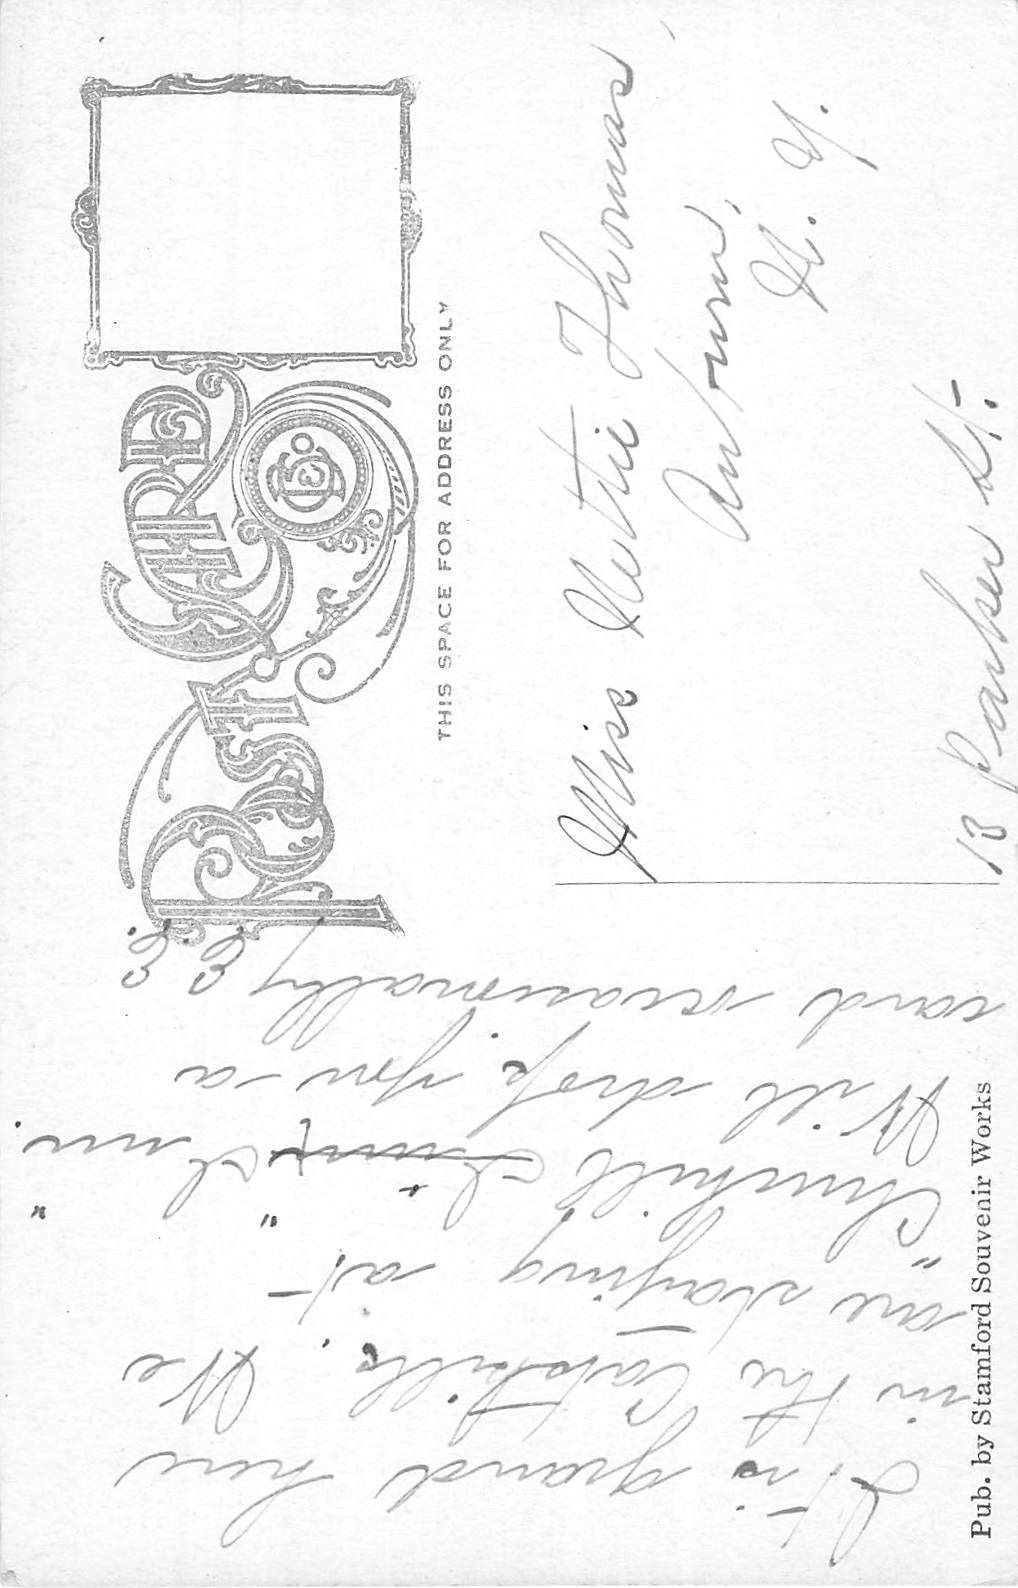 POST CARD
THIS SPACE FOR ADDRESS ONLY
It is grand here
in the Catskills. We
are staying at
"Churchill Inn"
Will drop you a
card occasionally
E. E.
Miss Nettie Thomas,
Auburn,
N. Y.
13 Parker St.
Pub. by Stamford Souvenir Works